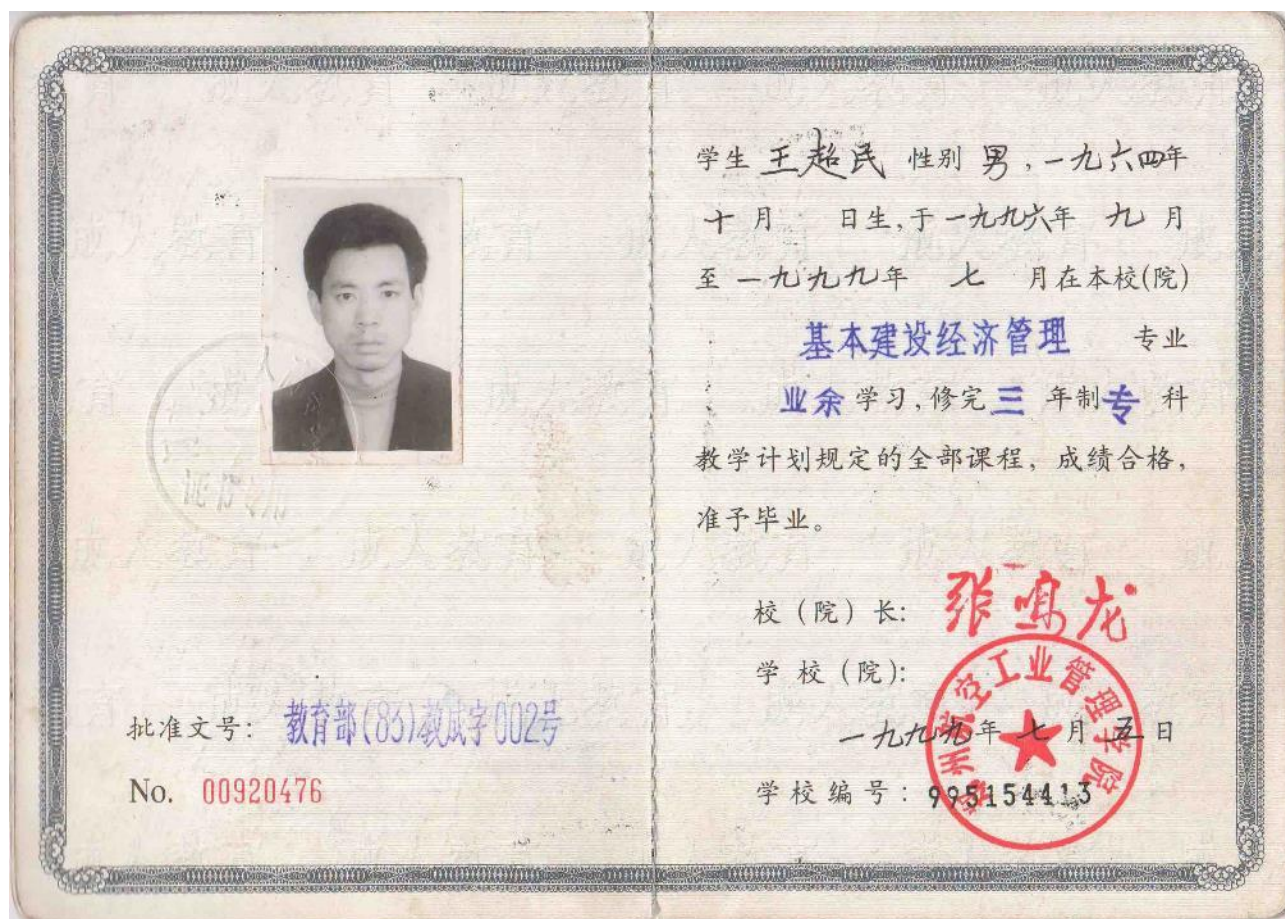 批准文号: 教育部(83)教成字002号
No. 00920476
学生 王超民 性别 男,一九六四年
十月 日生,于一九九六年 九月
至一九九九年 七 月在本校(院)
基本建设经济管理 专业
业余学习,修完三年制专科
教学计划规定的全部课程,成绩合格,
准予毕业。
校(院)长: 张鸣龙
学校(院):
郑州航空工业管理学院
一九九九年七月五日
学校编号: 995154413
成人教育 成人教育 成人教育 成人教育